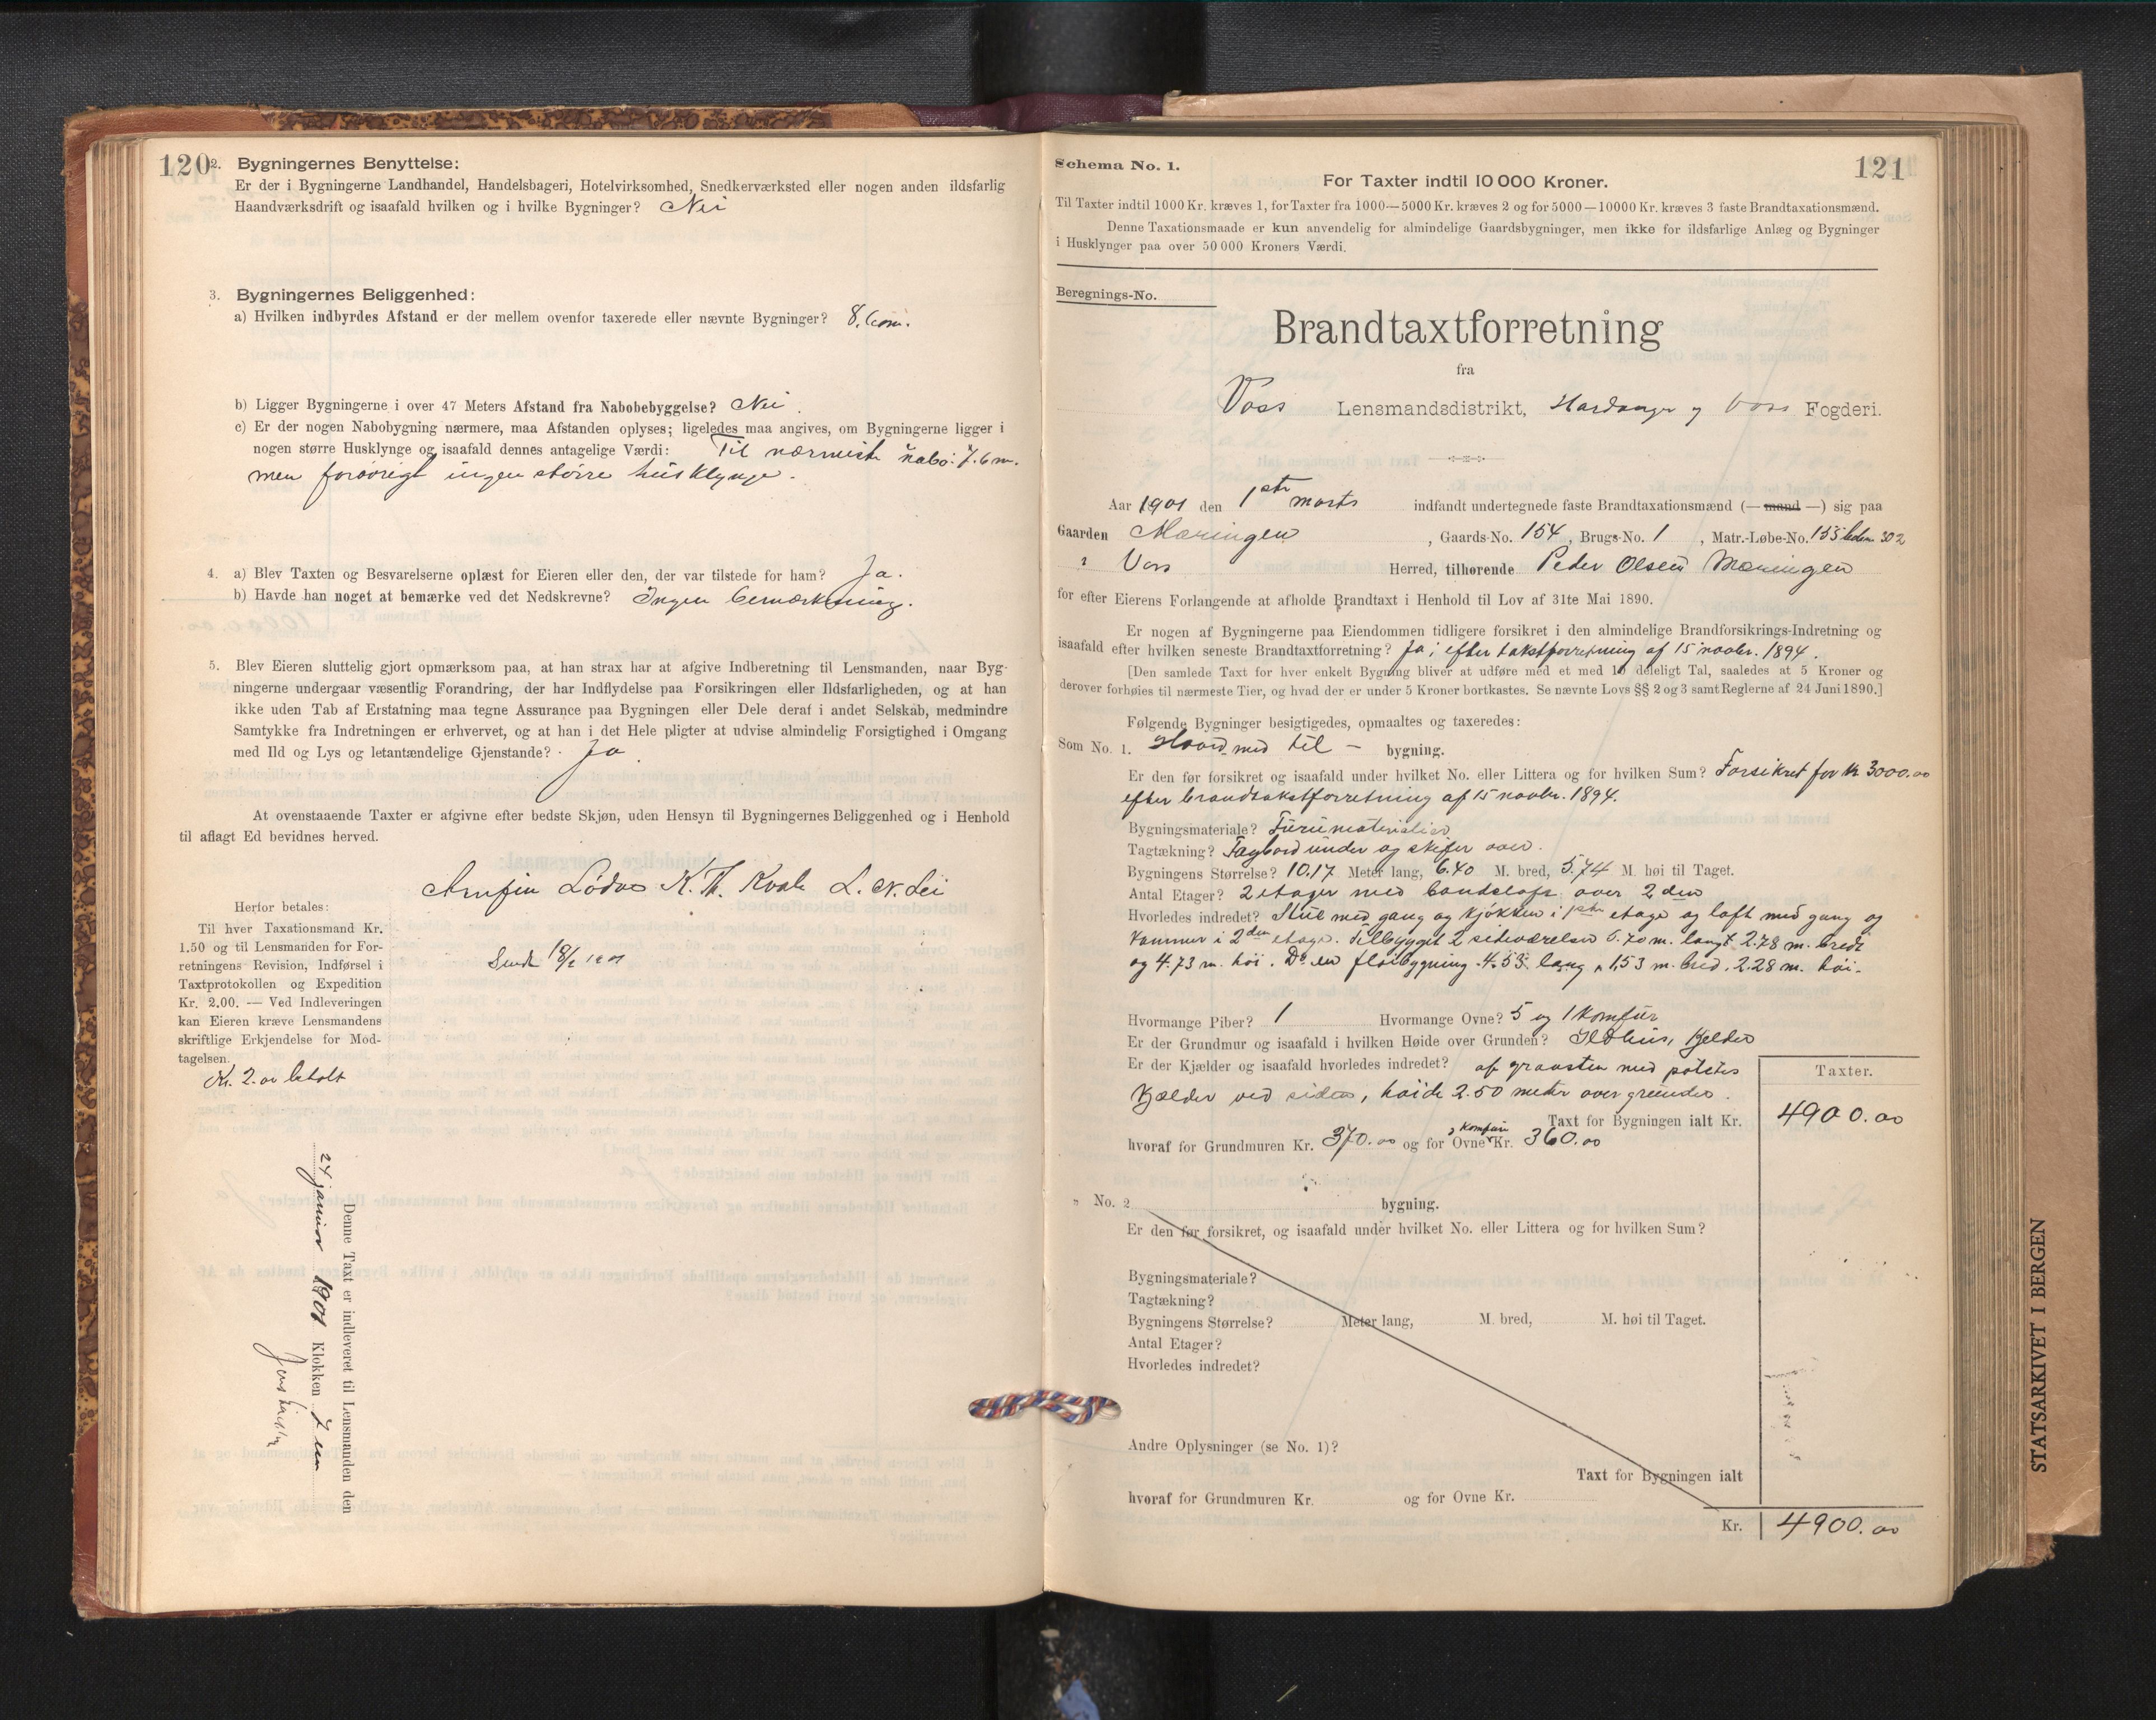 120
2. Bygningernes Benyttelse:
Er der i Bygningerne Landhandel, Handelsbageri, Hotelvirksomhed, Snedkerværksted eller nogen anden ildsfarlig
Haandværksdrift og isaafald hvilken og i hvilke Bygninger? Nei
3. Bygningernes Beliggenhed:
a) Hvilken indbyrdes Afstand er der mellem ovenfor taxerede eller nævnte Bygninger?
b) Ligger Bygningerne i over 47 Meters Afstand fra Nabobebyggelse? Nei.
c) Er der nogen Nabobygning nærmere, maa Afstanden oplyses; ligeledes maa angives, om Bygningerne ligger i
nogen større Husklynge og isaafald dennes antagelige Værdi: Til nærmeste nabo: 7.6 m.
men forøvrigt ingen større husklynge.
4. a) Blev Taxten og Besvarelserne oplæst for Eieren eller den, der var tilstede for ham? Ja.
b) Havde han noget at bemærke ved det Nedskrevne? Ingen bemærkning.
5. Blev Eieren sluttelig gjort opmærksom paa, at han strax har at afgive Indberetning til Lensmanden, naar Byg-
ningerne undergaar væsentlig Forandring, der har Indflydelse paa Forsikringen eller Ildsfarligheden, og at han
ikke uden Tab af Erstatning maa tegne Assurance paa Bygningen eller Dele deraf i andet Selskab, medmindre
Samtykke fra Indretningen er erhvervet, og at han i det Hele pligter at udvise almindelig Forsigtighed i Omgang
med Ild og Lys og letantændelige Gjenstande? Ja.
At ovenstaaende Taxter er afgivne efter bedste Skjøn, uden Hensyn til Bygningernes Beliggenhed og i Henhold
til aflagt Ed bevidnes herved.
K. Th. Kvale L. N. Lei
Herfor betales:
Til hver Taxationsmand Kr.
1.50 og til Lensmanden for For-
retningens Revision, Indførsel i
Taxtprotokollen og Expedition
Kr. 2.00. — Ved Indleveringen
kan Eieren kræve Lensmandens
skriftlige Erkjendelse for Mod-
tagelsen.
Kr. 2.00 betalt
Sendt 18/2 1901
Denne Taxt er indleveret til Lensmanden den
24 januar 1901 Klokken 7 em
Schema No. 1.
121
For Taxter indtil 10 000 Kroner.
Til Taxter indtil 1000 Kr. kræves 1, for Taxter fra 1000—5000 Kr. kræves 2 og for 5000—10000 Kr. kræves 3 faste Brandtaxationsmænd.
Denne Taxationsmaade er kun anvendelig for almindelige Gaardsbygninger, men ikke for ildsfarlige Anlæg og Bygninger
i Husklynger paa over 50 000 Kroners Værdi.
Beregnings-No.
Brandtaxtforretning
fra
Voss Lensmandsdistrikt, Hardanger og Voss Fogderi.
Aar 1901 den 1ste marts indfandt undertegnede faste Brandtaxationsmænd (— mand —) sig paa
Gaarden Mæringen, Gaards-No. 154, Brugs-No. 1, Matr.-Løbe-No. 155 302
i Voss Herred, tilhørende Peder Olsen Mæringen
for efter Eierens Forlangende at afholde Brandtaxt i Henhold til Lov af 31te Mai 1890.
Er nogen af Bygningerne paa Eiendommen tidligere forsikret i den almindelige Brandforsikrings-Indretning og
isaafald efter hvilken seneste Brandtaxtforretning? Ja, efter takstforretning af 15 novbr. 1894.
[Den samlede Taxt for hver enkelt Bygning bliver at udføre med et med 10 deleligt Tal, saaledes at 5 Kroner og
derover forhøies til nærmeste Tier, og hvad der er under 5 Kroner bortkastes. Se nævnte Lovs §§ 2 og 3 samt Reglerne af 24 Juni 1890.]
Følgende Bygninger besigtigedes, opmaaltes og taxeredes:
Som No. 1. med til - bygning.
Er den før forsikret og isaafald under hvilket No. eller Littera og for hvilken Sum? Forsikret for kr 3000.00
efter brandtakstforretning af 15 novbr. 1894.
Bygningsmateriale? Furumaterialier
Tagtækning? Tagbord under og skifer over.
Bygningens Størrelse? 10.17 Meter lang, 6.40 M. bred, 5.74 M. høi til Taget.
Antal Etager? 2 etager med baandslofs over 2den
Hvorledes indredet? Stue med gang og kjøkken i 1ste etage og loft med gang og
kammer i 2den etage. Tilbygget 2 sideværelser 6.70 m. langt 2.78 m. bredt
og 4.73 m. høi. Do en fløibygning 4.53 lang, 1.53 m. bred, 2.28 m. høi.
Hvormange Piber? 1 Hvormange Ovne? 5 og 1 komfur
Er der Grundmur og isaafald i hvilken Høide over Grunden? Ildhus, kjelder
Er der Kjælder og isaafald hvorledes indredet? af graasten med potetes
kjælder ved siden, høide 2.50 meter over grunden.
Taxter.
Taxt for Bygningen ialt Kr. 4900.00
hvoraf for Grundmuren Kr. 370.00 og for Ovne, komfur Kr. 360.00
" No. 2 bygning.
Er den før forsikret, og isaafald under hvilket No. eller Littera og for hvilken Sum?
Bygningsmateriale?
Tagtækning?
Bygningens Størrelse? Meter lang, M. bred, M. høi til Taget.
Antal Etager?
Hvorledes indredet?
Andre Oplysninger (se No. 1)?
Taxt for Bygningen ialt
hvoraf for Grundmuren Kr. og for Ovne Kr.
Kr. 4900.00
STATSARKIVET I BERGEN